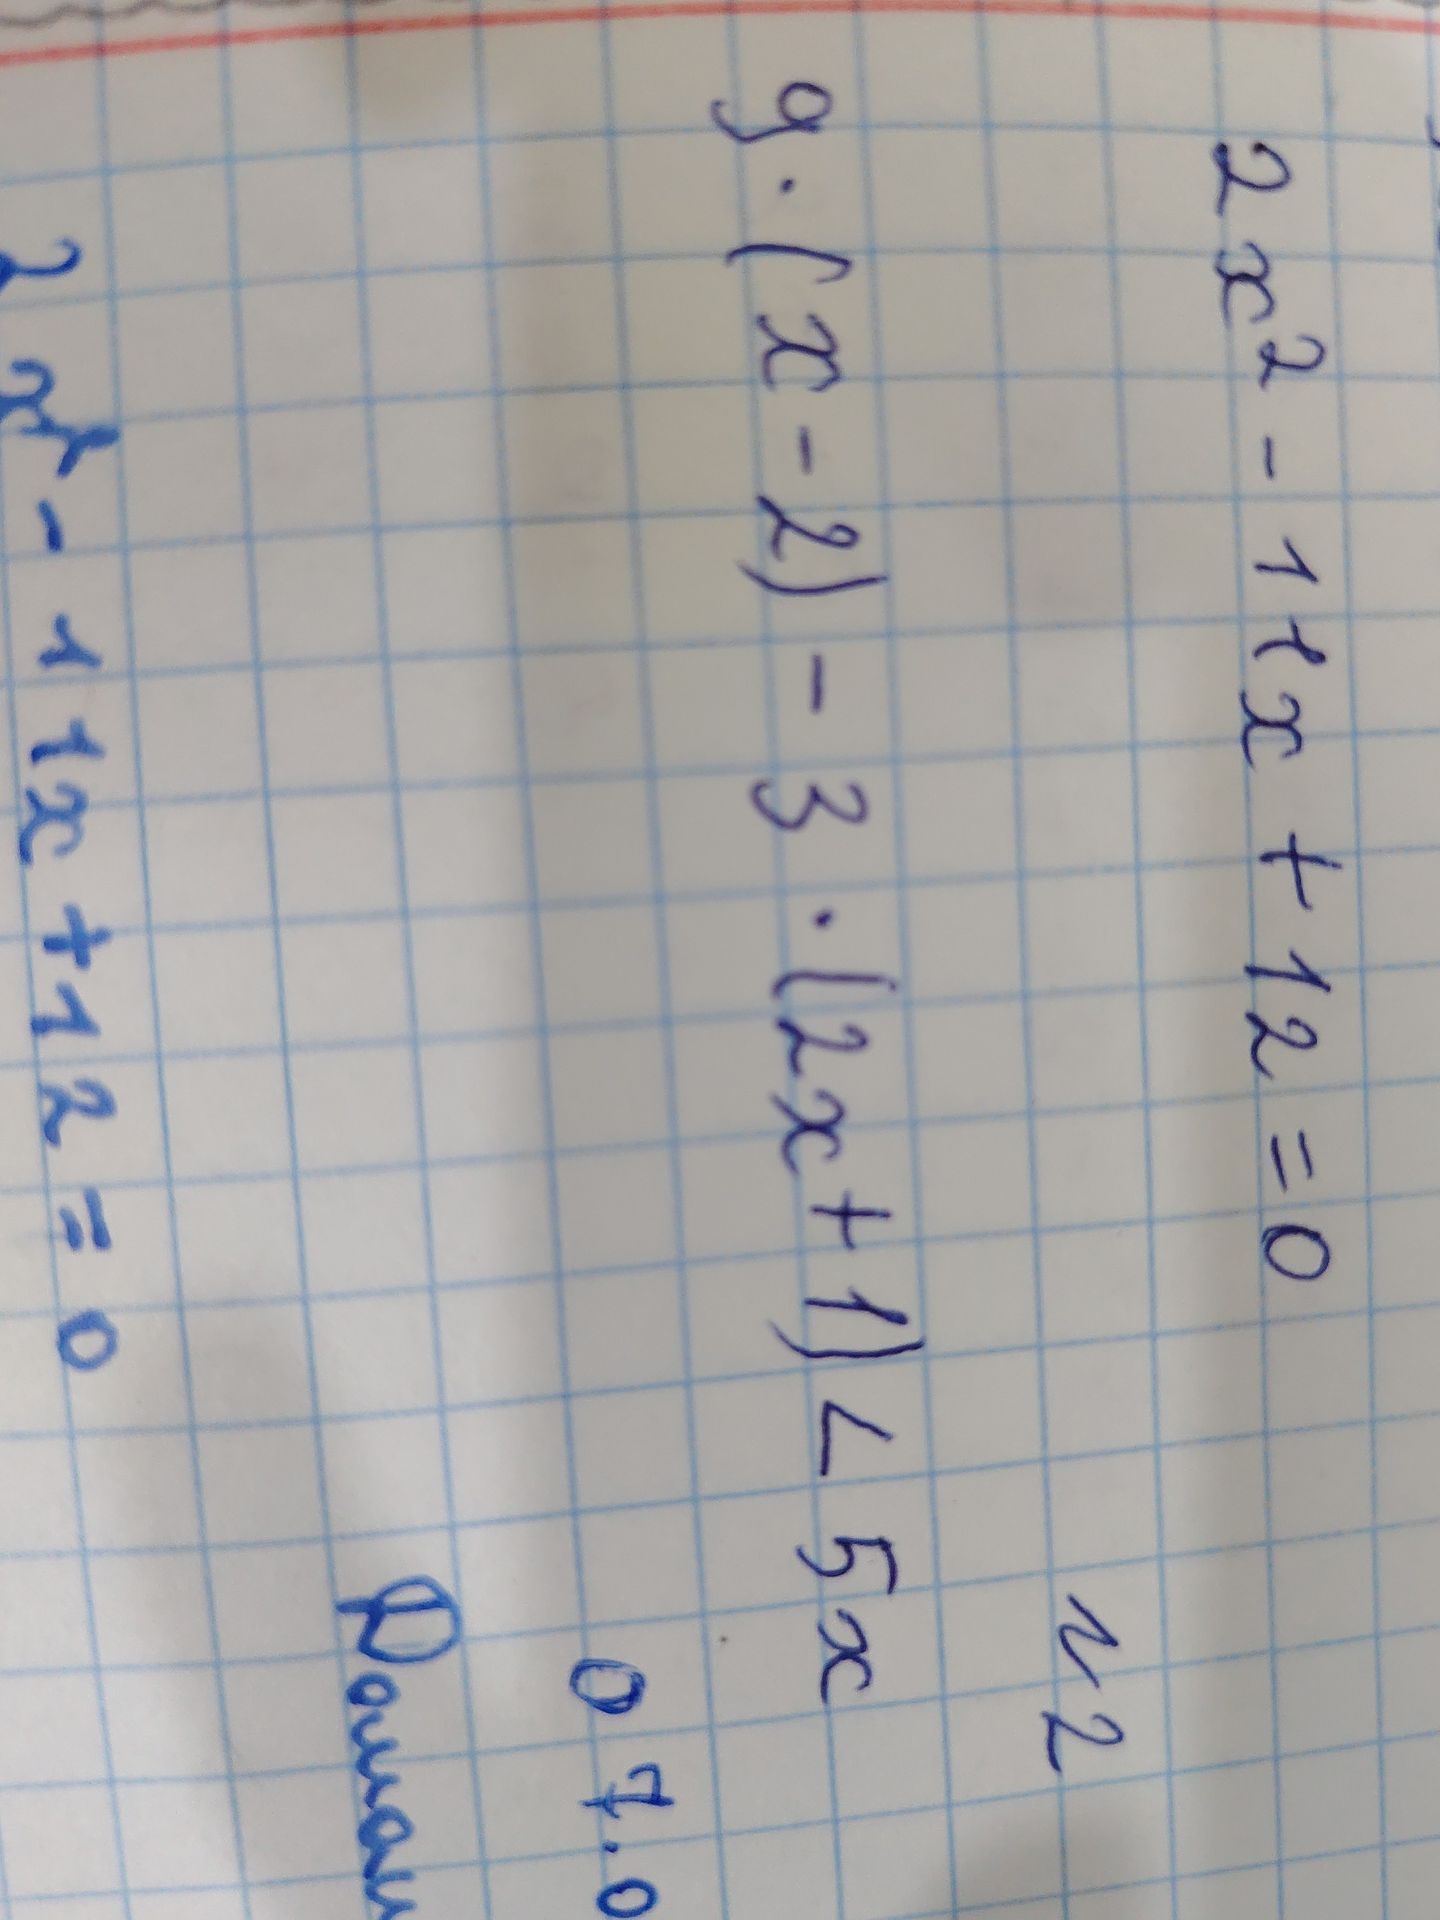 2x² - 11x + 12 = 0
№2
9 · (x - 2) - 3 · (2x + 1) < 5x
07.0
Домаш
2x² - 11x + 12 = 0